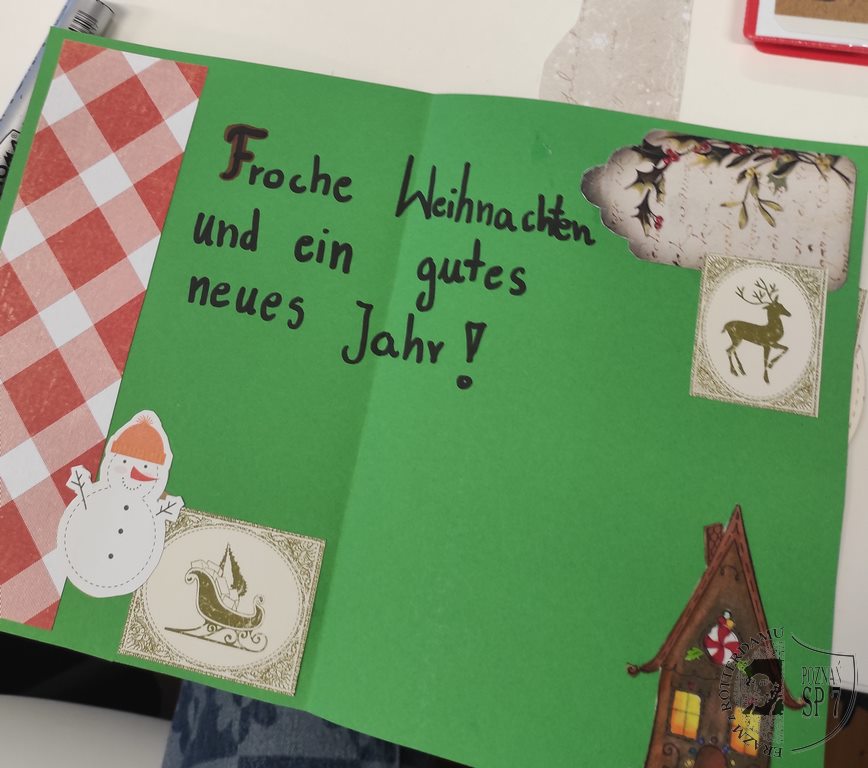 Froche Weihnachten
und ein gutes
neues Jahr!
ERAZM Z ROTTERDAMU
POZNAŃ
SP 7